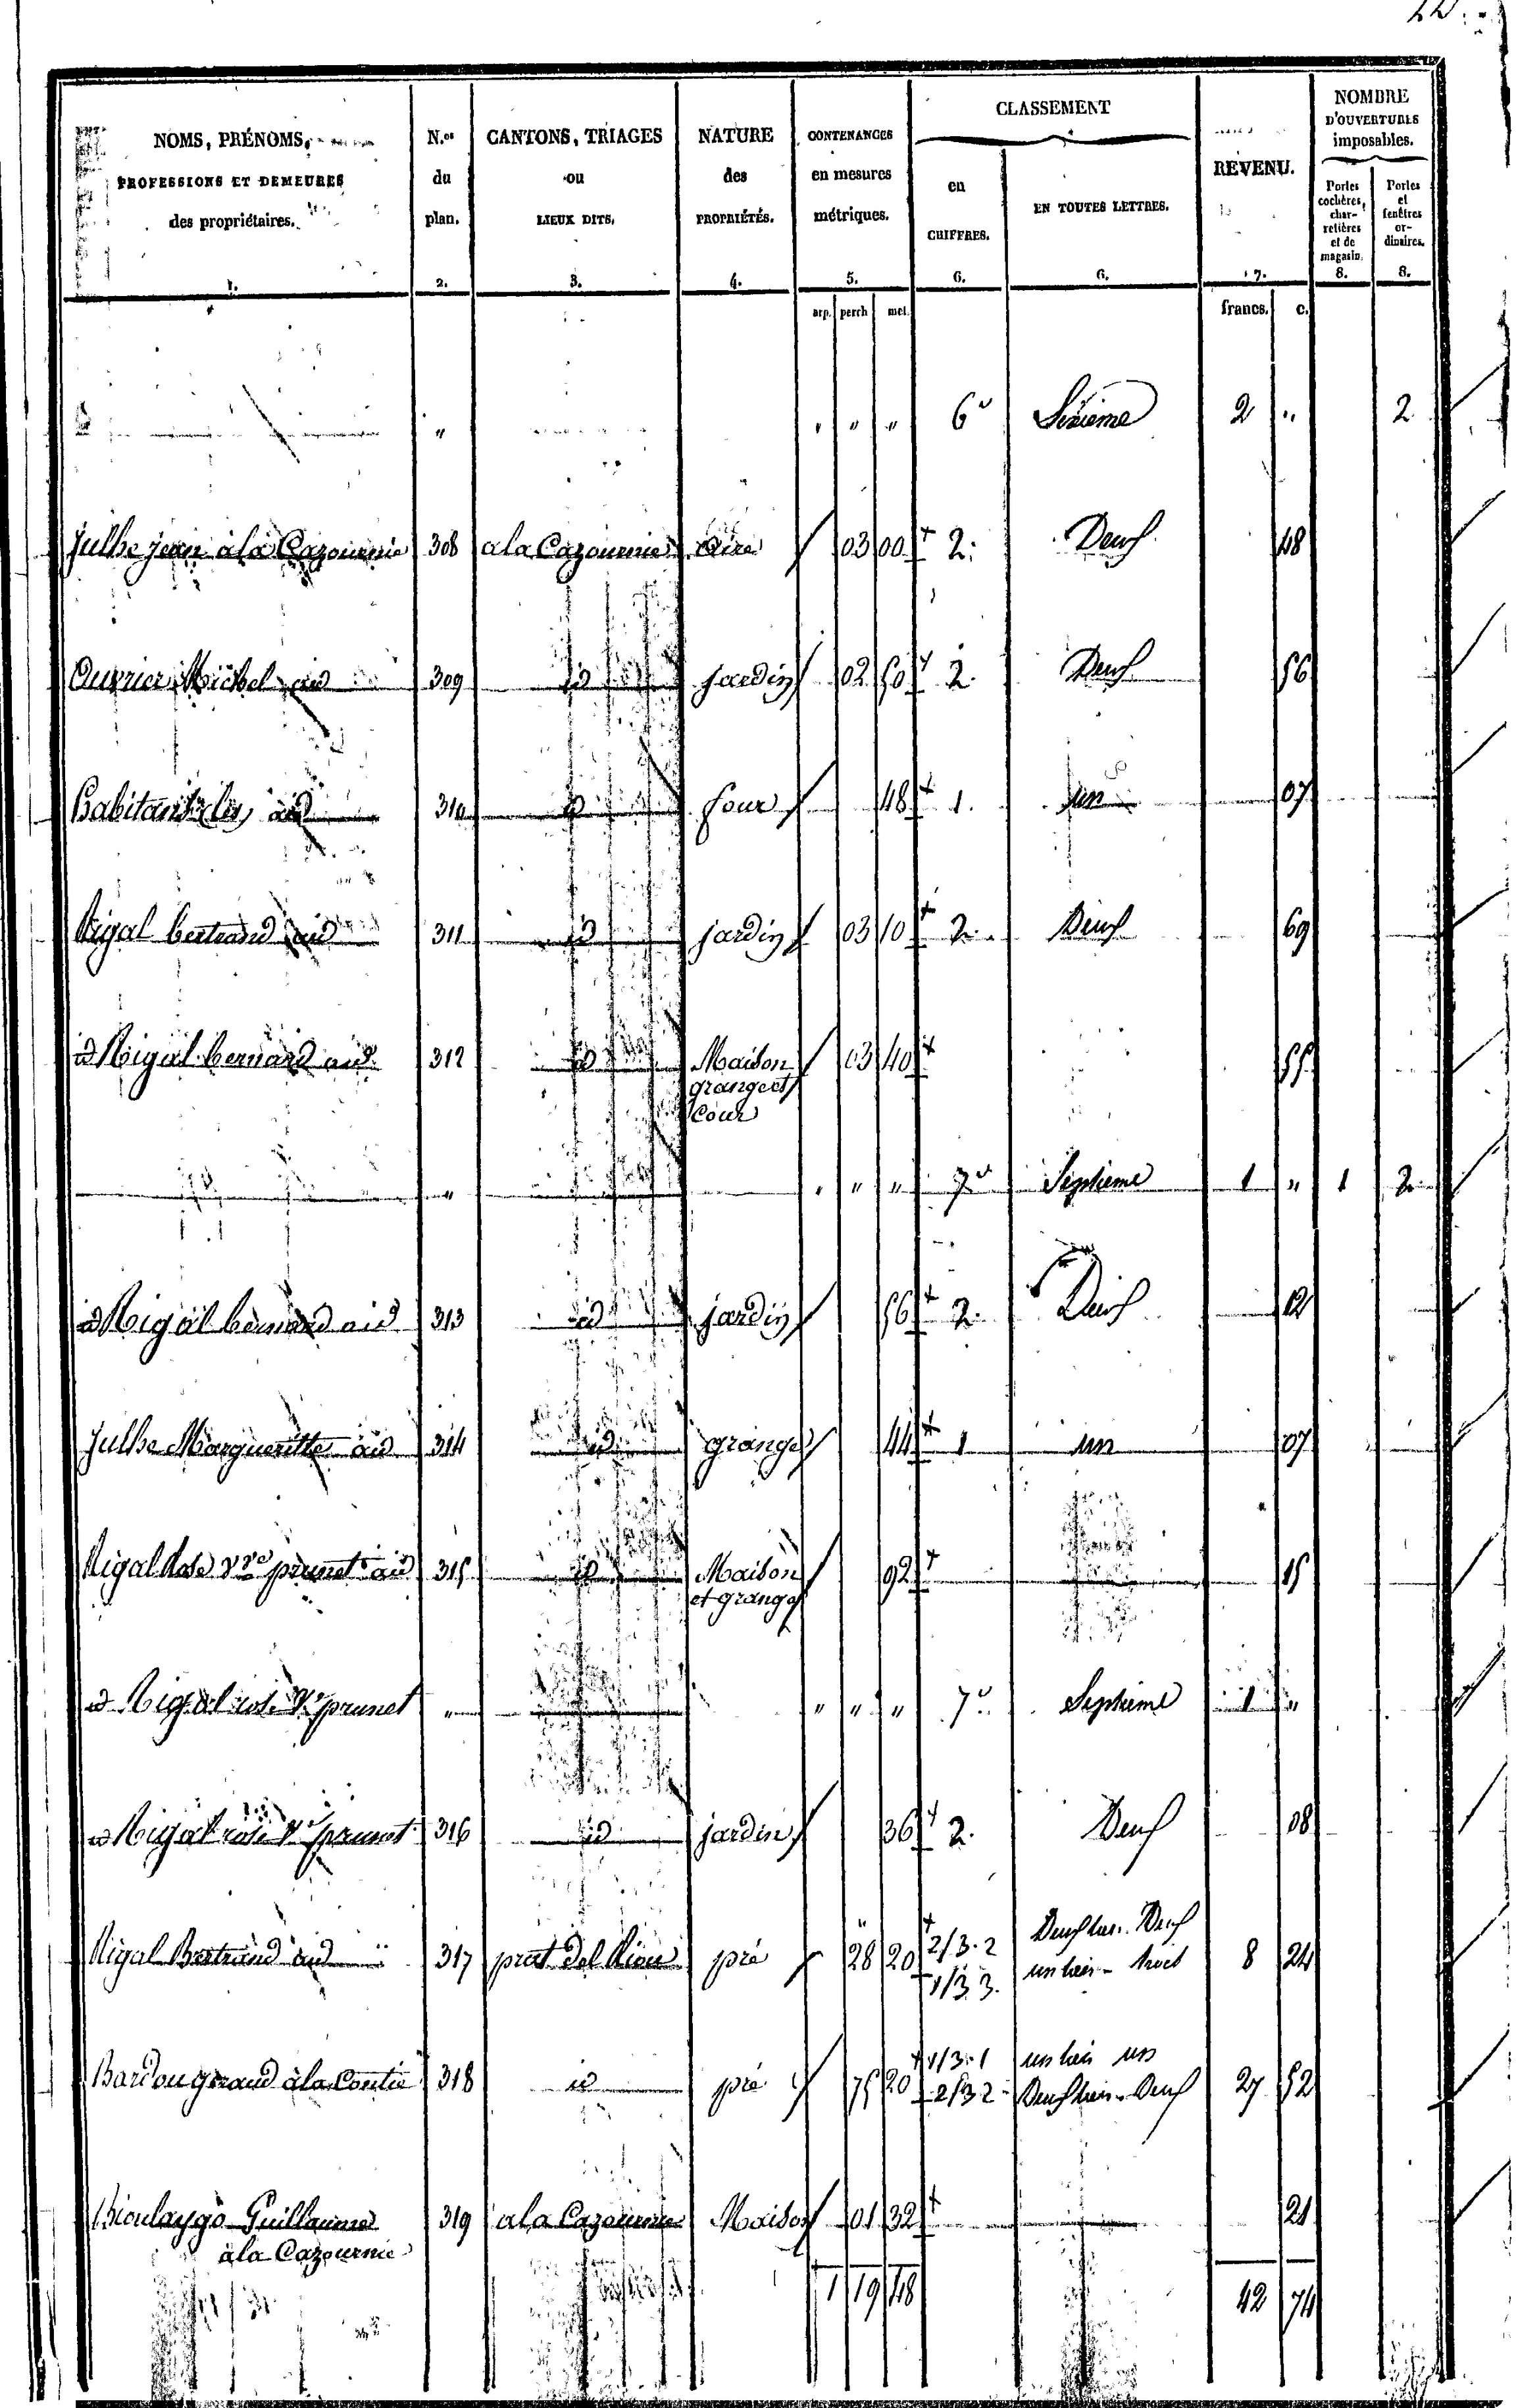 22.
NOMS, PRÉNOMS,
PROFESSIONS ET DEMEURES
des propriétaires.
1.
N.os
du
plan.
2.
CANTONS, TRIAGES
ou
LIEUX DITS,
3.
NATURE
des
PROPRIÉTÉS.
4.
CONTENANCES
en mesures
métriques.
5.
CLASSEMENT
en
CHIFFRES.
6.
EN TOUTES LETTRES.
6.
REVENU.
7.
NOMBRE
D'OUVERTURES
imposables.
Portes
cochères,
char-
retières
et de
magasin.
8.
Portes
et
fenêtres
or-
dinaires.
8.
arp. perch met. francs. c.
" " " " 6e Sixieme 2 " 2
Julhe jean à la Cazournie 308 a la Cazournie aire 03 00 2. Deux 48
Ouvrier Michel aid 309 id jardin 02 50 2. Deux 56
habitants les aid 310 id four 48 1. un 07
Rigal bertrand aid 311 id jardin 03 10 2. Deux 69
id Rigal bernard aid 312 id Maison 03 40 55
grange et
Cour
" " " " 7e Septieme 1 " 1 2
id Rigal bernard aid 313 id jardin 56 2. Deux 12
Julhe Margueritte aid 314 id grange 44 1 un 07
Rigal Rose vve prunet aid 315 id Maison 92 15
et grange
id Rigal rose Ve prunet " " " " 7e Septieme 1 "
id Rigal rose Ve prunet 316 id jardin 36 2. Deux 08
Rigal Bertrand aid 317 prat del Riou pré 28 20 2/3. 2 Deux tiers. Deux 8 24
1/3 3. un tiers - trois
Bardou geraud à la Contie 318 id pré 75 20 1/3. 1 un tiers un 27 52
2/3 2 Deux tiers - Deux
Guillaume 319 a la Cazournie Maison 01 32 21
à la Cazournie
1 19 48 42 74